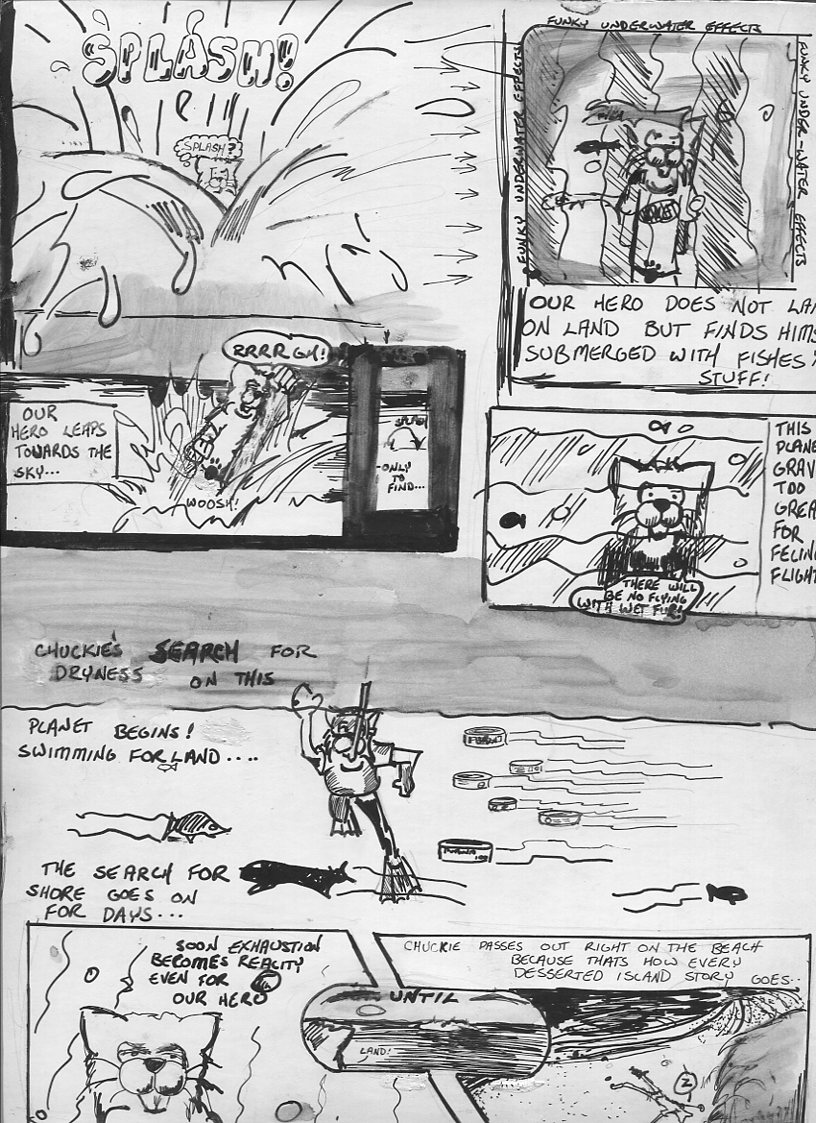 SPLASH!
SPLASH?
FUNKY UNDERWATER EFFECTS
FUNKY UNDERWATER EFFECTS
FUNKY UNDER-WATER EFFECTS
OUR HERO DOES NOT LAN
ON LAND BUT FINDS HIMS
SUBMERGED WITH FISHES
STUFF!
OUR
HERO LEAPS
TOWARDS THE
SKY...
RRRRGH!
WOOSH!
SPLASH
ONLY
TO
FIND...
THIS
PLANE
GRAV
TOO
GREA
FOR
FELIN
FLIGHT
THERE WILL
BE NO FLYING
WITH WET FUR!
CHUCKIE'S SEARCH FOR
DRYNESS ON THIS
PLANET BEGINS!
SWIMMING FOR LAND....
THE SEARCH FOR
SHORE GOES ON
FOR DAYS...
SOON EXHAUSTION
BECOMES REALITY
EVEN FOR
OUR HERO
UNTIL
LAND!
CHUCKIE PASSES OUT RIGHT ON THE BEACH
BECAUSE THATS HOW EVERY
DESSERTED ISLAND STORY GOES..
Z